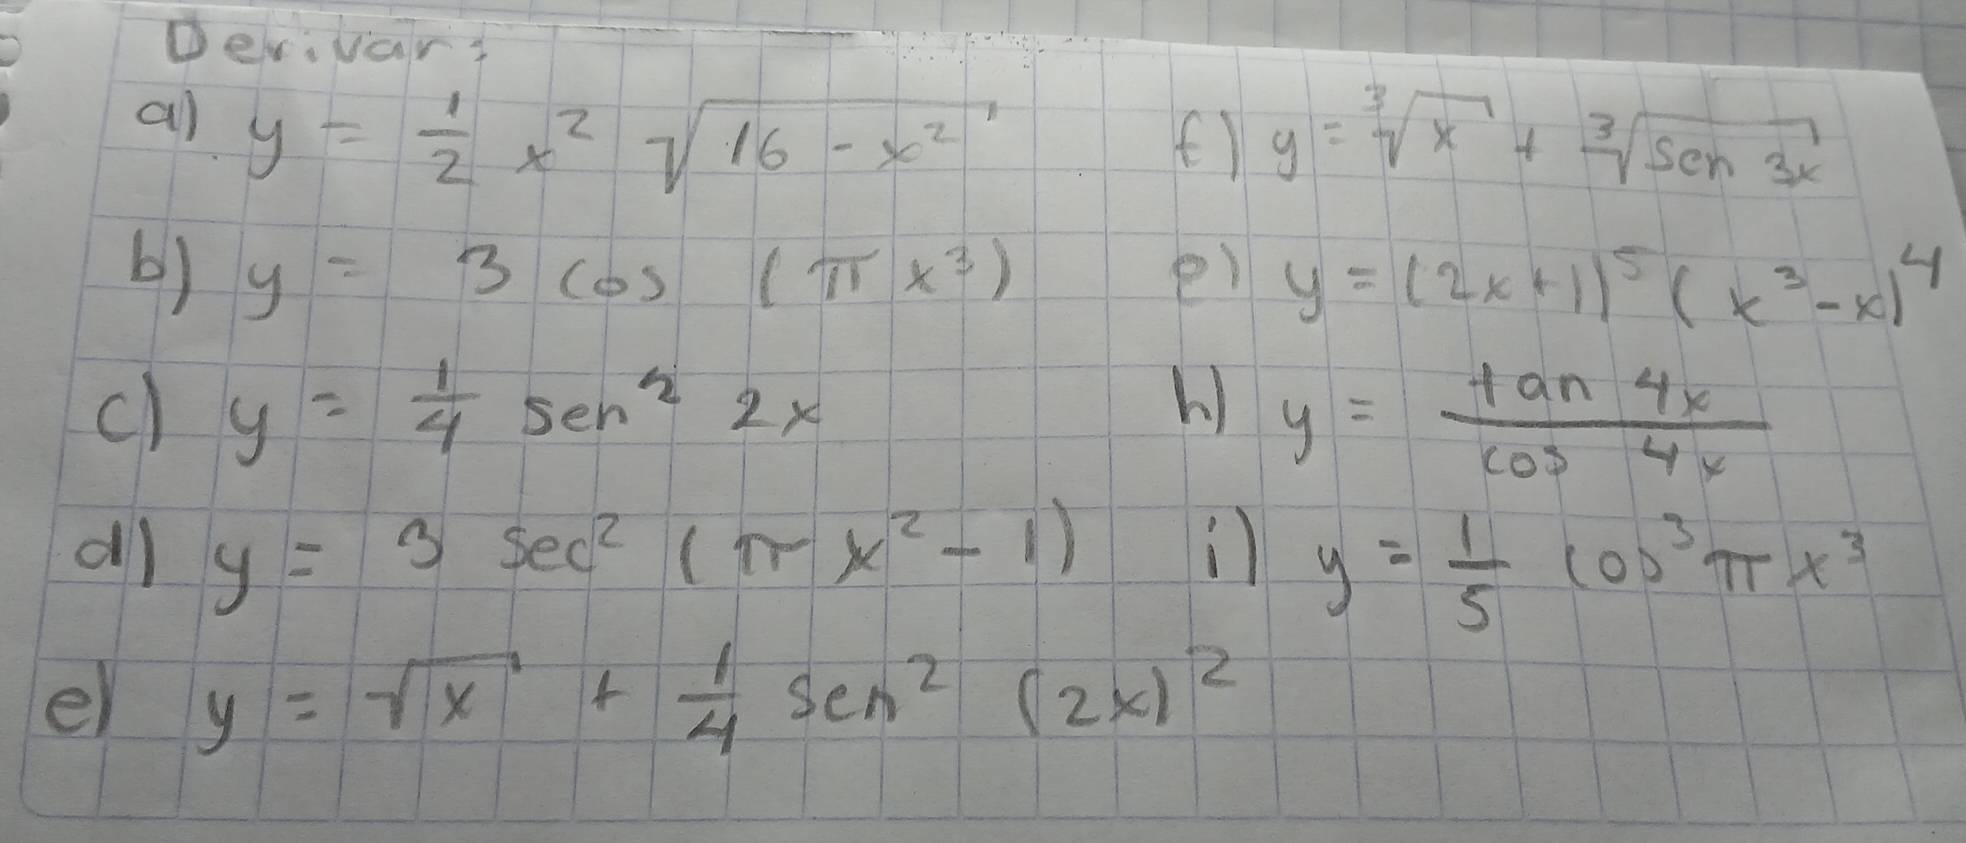 Derivar:
a) y = 1/2 x² √(16 - x²)
b) y = 3 cos (π x³)
c) y = 1/4 sen² 2x
d) y = 3 sec² (π x² - 1)
e) y = √x + 1/4 sen² (2x)²
f) y = ³√x + ³√(sen 3x)
e) y = (2x + 1)⁵ (x³ - x)⁴
h) y = tan 4x / cos 4x
i) y = 1/5 cos³ π x³